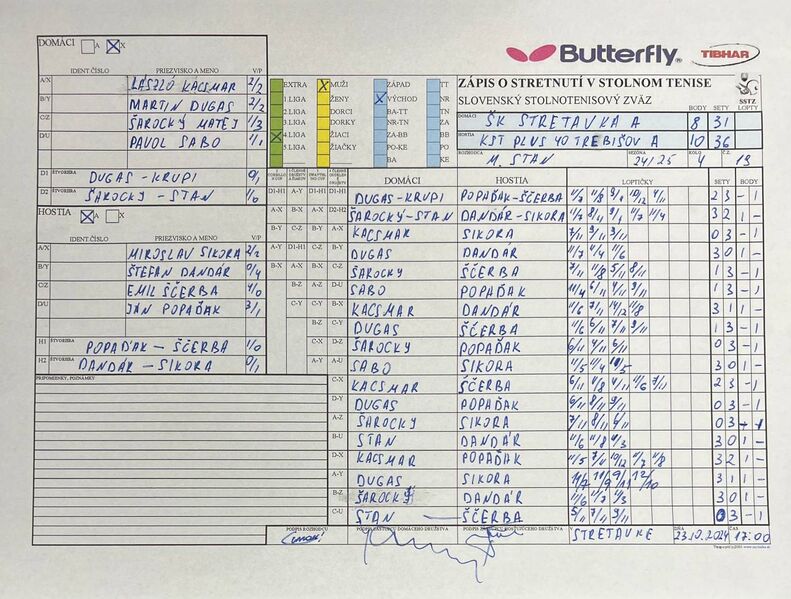 DOMÁCI A X
Butterfly TIBHAR
IDENT.ČÍSLO PRIEZVISKO A MENO V/P
A/X LÁSZLÓ KACSMAR 2/2
B/Y MARTIN DUGAS 2/2
C/Z ŠAROCKÝ MATEJ 1/3
D/U PAVOL SABO 1/1
EXTRA MUŽI ZÁPAD TT
1.LIGA ŽENY VÝCHOD NR
2.LIGA DORCI BA-TT TN
3.LIGA DORKY NR-TN ZA
4.LIGA ŽIACI ZA-BB BB
5.LIGA ŽIAČKY PO-KE PO
BA KE
ZÁPIS O STRETNUTÍ V STOLNOM TENISE
SLOVENSKÝ STOLNOTENISOVÝ ZVÄZ BODY SETY LOPTY
SSTZ
DOMÁCI ŠK STRETAVKA A 8 31
HOSTIA KST PLUS 40 TREBIŠOV A 10 36
ROZHODCA M. STAN SEZÓNA 24/25 KOLO 4 19
D1 ŠTVORHRA DUGAS - KRUPI 0/1
D2 ŠTVORHRA ŠAROCKY - STAN 1/0
HOSTIA A X
IDENT.ČÍSLO PRIEZVISKO A MENO V/P
A/X MIROSLAV SIKORA 2/2
B/Y ŠTEFAN DANDÁR 0/4
C/Z EMIL ŠČERBA 4/0
D/U JÁN POPAĎAK 3/1
H1 ŠTVORHRA POPAĎAK - ŠČERBA 1/0
H2 ŠTVORHRA DANDÁR - SIKORA 0/1
PRIPOMIENKY, POZNÁMKY
DOMÁCI HOSTIA LOPTIČKY SETY BODY
D1-H1 DUGAS-KRUPI POPAĎAK-ŠČERBA 2 3 - 1
D2-H2 ŠAROCKÝ-STAN DANDÁR-SIKORA 3 2 1 -
A-X KACSMAR SIKORA 0 3 - 1
B-Y DUGAS DANDÁR 11/7 11/4 11/6 3 0 1 -
C-Z ŠAROCKY ŠČERBA 7/11 11/8 5/11 8/11 1 3 - 1
D-U SABO POPAĎAK 11/4 6/11 4/11 9/11 1 3 - 1
B-X KACSMAR DANDÁR 11/6 7/11 14/12 11/8 3 1 1 -
C-Y DUGAS ŠČERBA 11/6 6/11 7/11 9/11 1 3 - 1
D-Z ŠAROCKY POPAĎAK 6/11 4/11 6/11 0 3 - 1
A-U SABO SIKORA 3 0 1 -
C-X KACSMAR ŠČERBA 2 3 - 1
D-Y DUGAS POPAĎAK 6/11 8/11 9/11 0 3 - 1
A-Z ŠAROCKY SIKORA 7/11 8/11 6/11 0 3
B-U STAN DANDÁR 11/6 11/8 11/3 3 0 1 -
D-X KACSMAR POPAĎAK 11/5 7/11 10/12 11/7 11/8 3 2 1 -
A-Y DUGAS SIKORA 3 1 1 -
B-Z ŠAROCKÝ DANDÁR 11/6 11/7 11/3 3 0 1 -
C-U STAN - ŠČERBA 5/11 7/11 9/11 0 3 - 1
PODPIS ROZHODCU PODPIS ZÁSTUPCU DOMÁCEHO DRUŽSTVA PODPIS ZÁSTUPCU HOSŤUJÚCEHO DRUŽSTVA V STRETAVKE DŇA 23.10.2024 ČAS 17:00